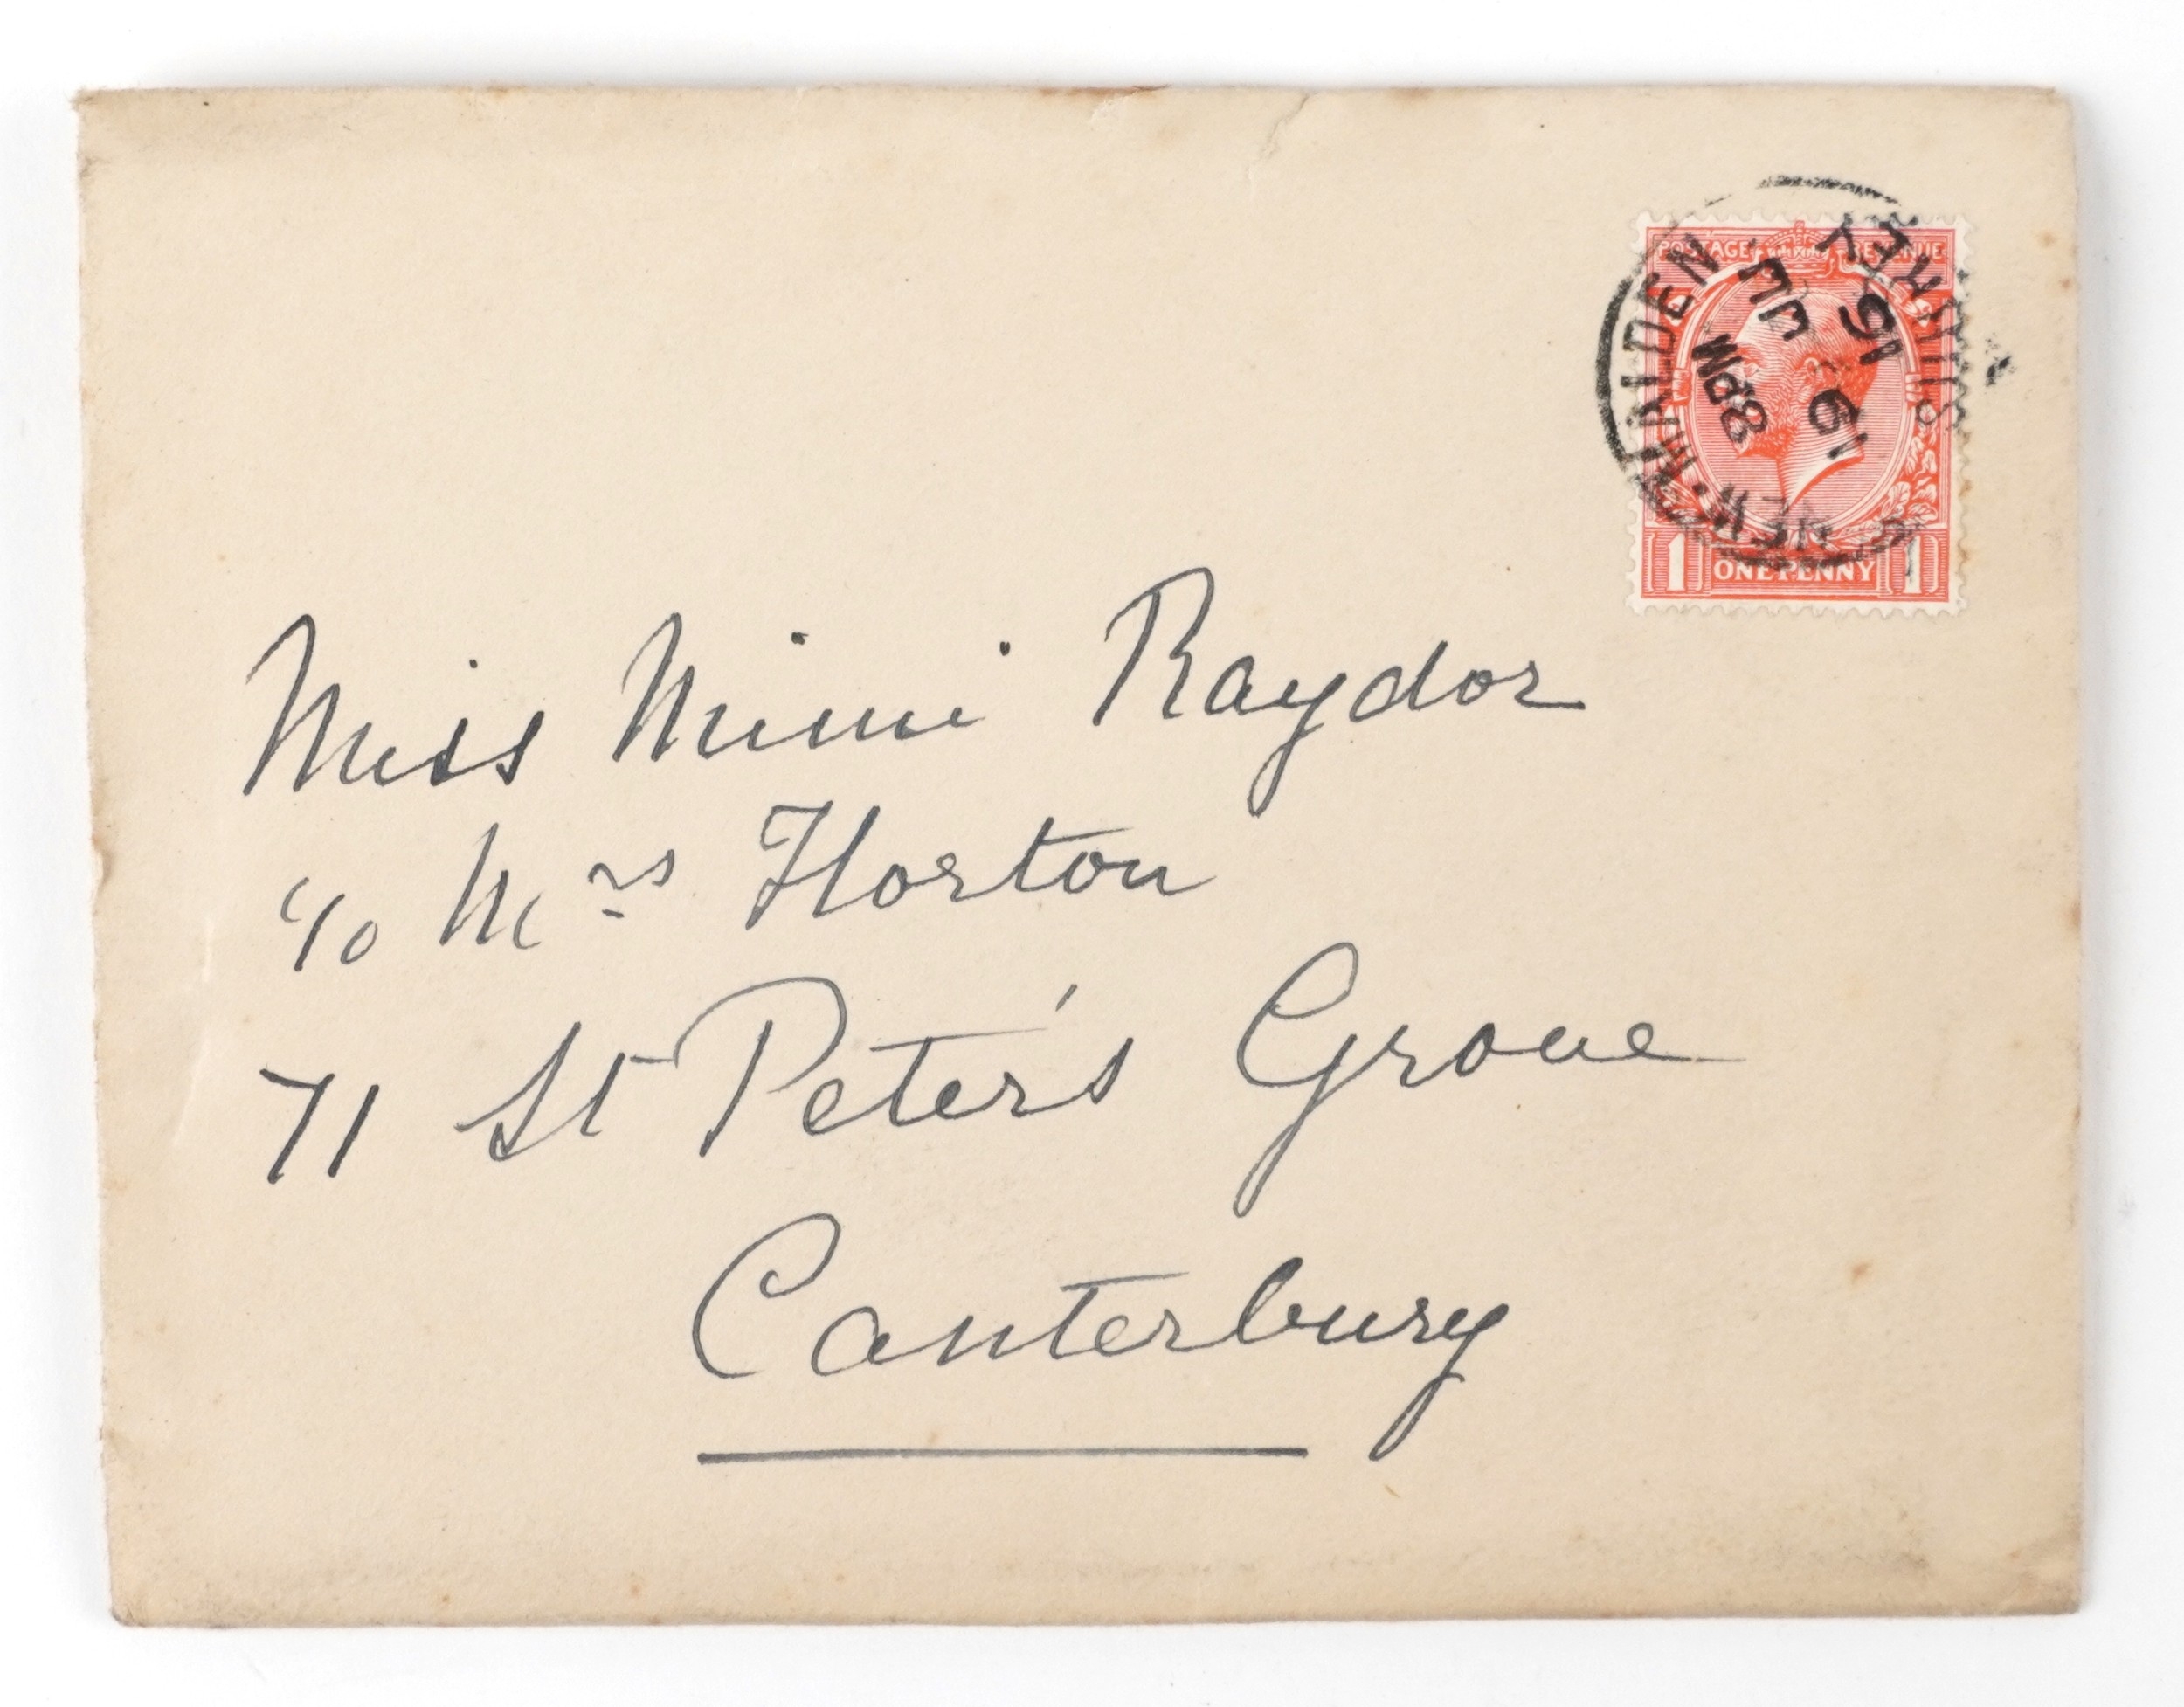 POSTAGE REVENUE
NEW·MALDEN SURREY
8 PM
19
16
ONE PENNY
1 1
Miss Mimi Raydor
c/o Mrs Horton
71 St Peter's Grove
Canterbury